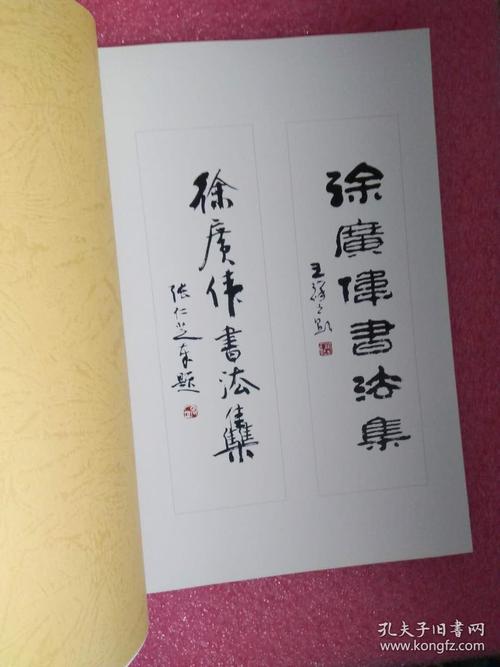 徐廣偉書法集
王
徐廣偉書法集
張仁芝題
孔夫子旧书网
www.kongfz.com